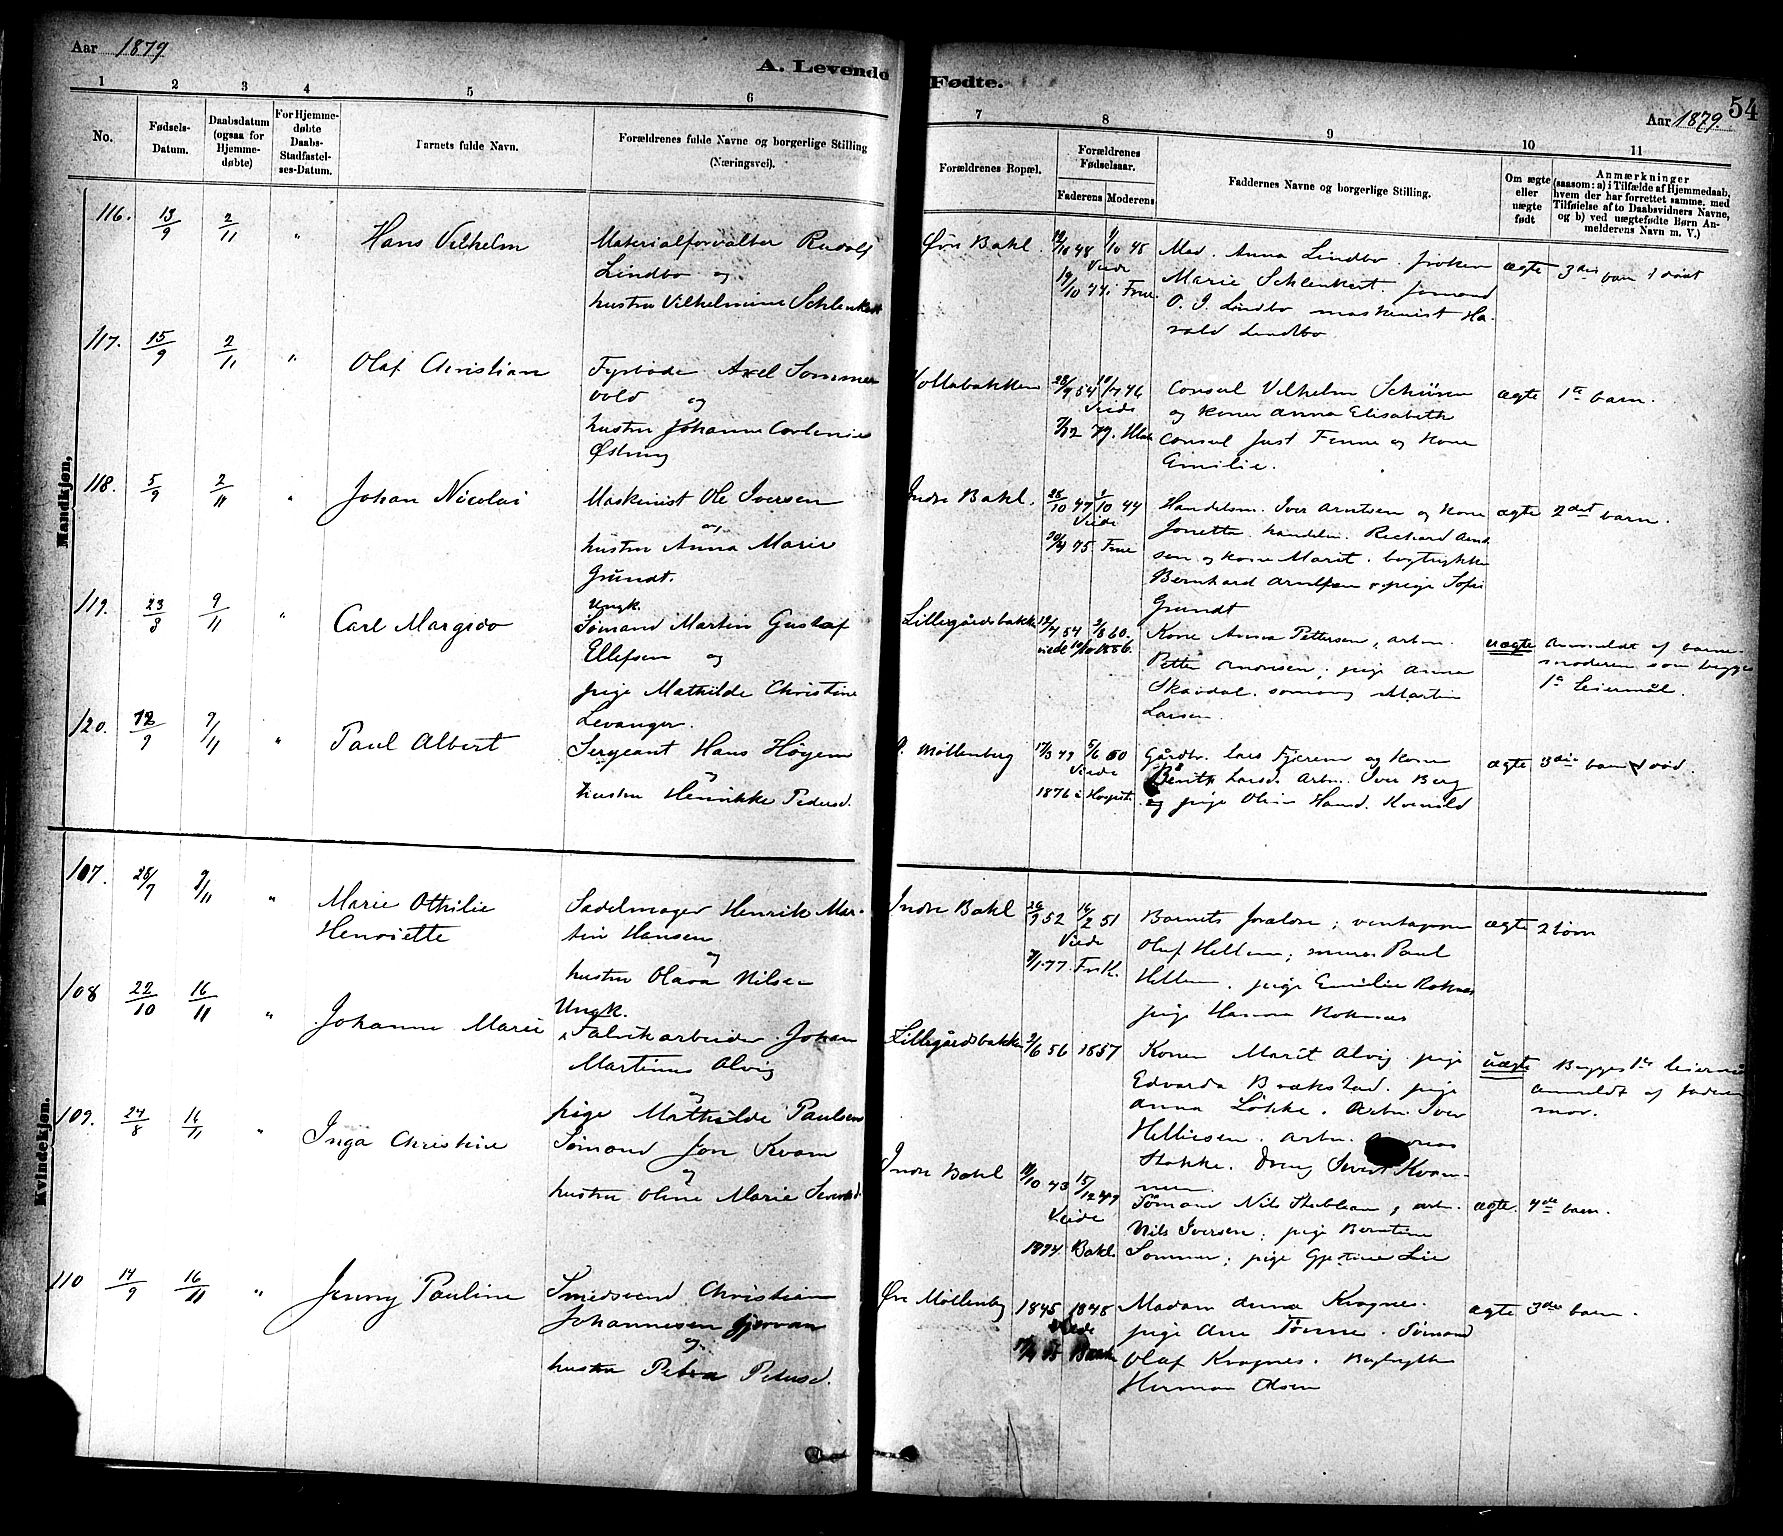 Aar 1879
A. Levende Fødte.
Aar 1879. 54
1 2 3 4 5 6 7 8 9 10 11
No.
Fødsels-
Datum.
Daabsdatum
(ogsaa for
Hjemme-
døbte)
For Hjemme-
døbte
Daabs-
Stadfæstel-
ses-Datum.
Barnets fulde Navn.
Forældrenes fulde Navne og borgerlige Stilling
(Næringsvei).
Forældrenes Bopæl.
Forældrenes
Fødselsaar.
Faderens Moderens
Faddernes Navne og borgerlige Stilling.
Om ægte
eller
uægte
født
Anmærkninger
(saasom: a) i Tilfælde af Hjemmedaab,
hvem der har forrettet samme, med
Tilføielse af to Daabsvidners Navne,
og b) ved uægtefødte Børn An-
melderens Navn m. V.)
Mandkjøn,
116. 13/9 2/11 " Hans Vilhelm
Materialforvalter Rudolf
Lindbo og
hustru Vilhelmine Schlenkert
Øvre Bakl. 48 9/10 45
Viede
19/10 77 i Frue.
Mad. Anna Lindbo. frøken
Marie Schlenkert. sømand
O. J. Lindbo maskinist Ha-
rald Lindbo
ægte 3die barn 1 død
117. 15/9 2/11 " Olaf Christian
Fyrbøder Axel Sommer
vold og
hustru Johanne
Østring
28/9 54 46
Viede
79.
Consul Vilhelm Schiøren
og kone Anna Elisabeth
Consul Just Finne og kone
Emilie.
ægte 1ste barn.
118. 5/9 2/11 " Johan Nicolai
Maskinist Ole Iversen
og
hustru Anna Marie
Grundt.
Indre Bakl. 47 2/10 47
Viede
75 Frue
Handelsm. Iver Arntsen og kone
Jonetta. handelm. Richard Arnt
sen og kone Marit. bogtrykker
Bernhard Arntsen og pige Sofie
Grundt
ægte 2det barn.
119. 23/8 9/11 " Carl Margido
Ungk.
Sømand Martin Gustaf
Ellefsen og
pige Mathilde Christine
Levanger.
Lillegårdsbakk 54 2/8 60.
viede 1886.
Kone Anna Pettersen, arbm.
Petter ; pige Anna
Skardal. sømand Martin
Larsen.
uægte Anmeldt af barne-
moderen som begges
1ste leiermål.
120. 12/9 9/11 " Paul Albert
Sergeant Hans Høyem
og
hustru Henrikke Pedersd.
Ø. Møllenberg 17/3 49 5/6 50
Viede
1876 i Hospit.
Gårdbr. Lars Fjærem og kone
Berith Larsd. Arbm. Iver Berg
og pige Oline
ægte 3die barn 1 død.
Kvindekjøn.
107. 28/7 9/11 " Marie Othilie
Henriette
Sadelmager Henrik Mar-
tin Hansen.
og
hustru Olava Nilsen
Indre Bakl. 52 16/2 51
Viede
7/1 77 Fr.K.
Barnets forældre;
Oluf Hellem; murer Paul
Hellem. pige Emilie Roknæs
pige Hanna Roknæs
ægte 2 børn
108 22/10 16/11 " Johanne Marie
Ungk.
Fabrikarbeider Johan
Martinus Alvig
og
pige Mathilde Paulsen
Lillegårdsbakken 2/6 56 1857
Konen Marit Alvig. pige
Edvarda Brækstad. pige
Anna Løkke. Arbm. Iver
Helliesen. arbm.
Stokke. Dreng Sivert Kvam-
men.
uægte Begges 1ste leiermål
anmeldt af faderens
mor.
109. 24/8 16/11 " Inga Christine
Sømand Jon Kvam
og
hustru Oline Marie
Indre Bakl 43 15/12 47
Viede
1874 Bakl.
Sømand Nils ; arbm.
Nils Iversen; pige Berntine
Sommer; pige Lie
ægte. 4de barn.
110 14/9 16/11 " Jenny Pauline
Smedsvend Christian
Johannesen
og
hustru Petra Pedersd.
Øvr Møllenbg 1845 1848
Viede
Bakl
Madam Anna Kragnes.
pige Ane Tønne. Sømand
Olaf Kragnes. Bogtrykker
Herman Olsen
ægte 3die barn.